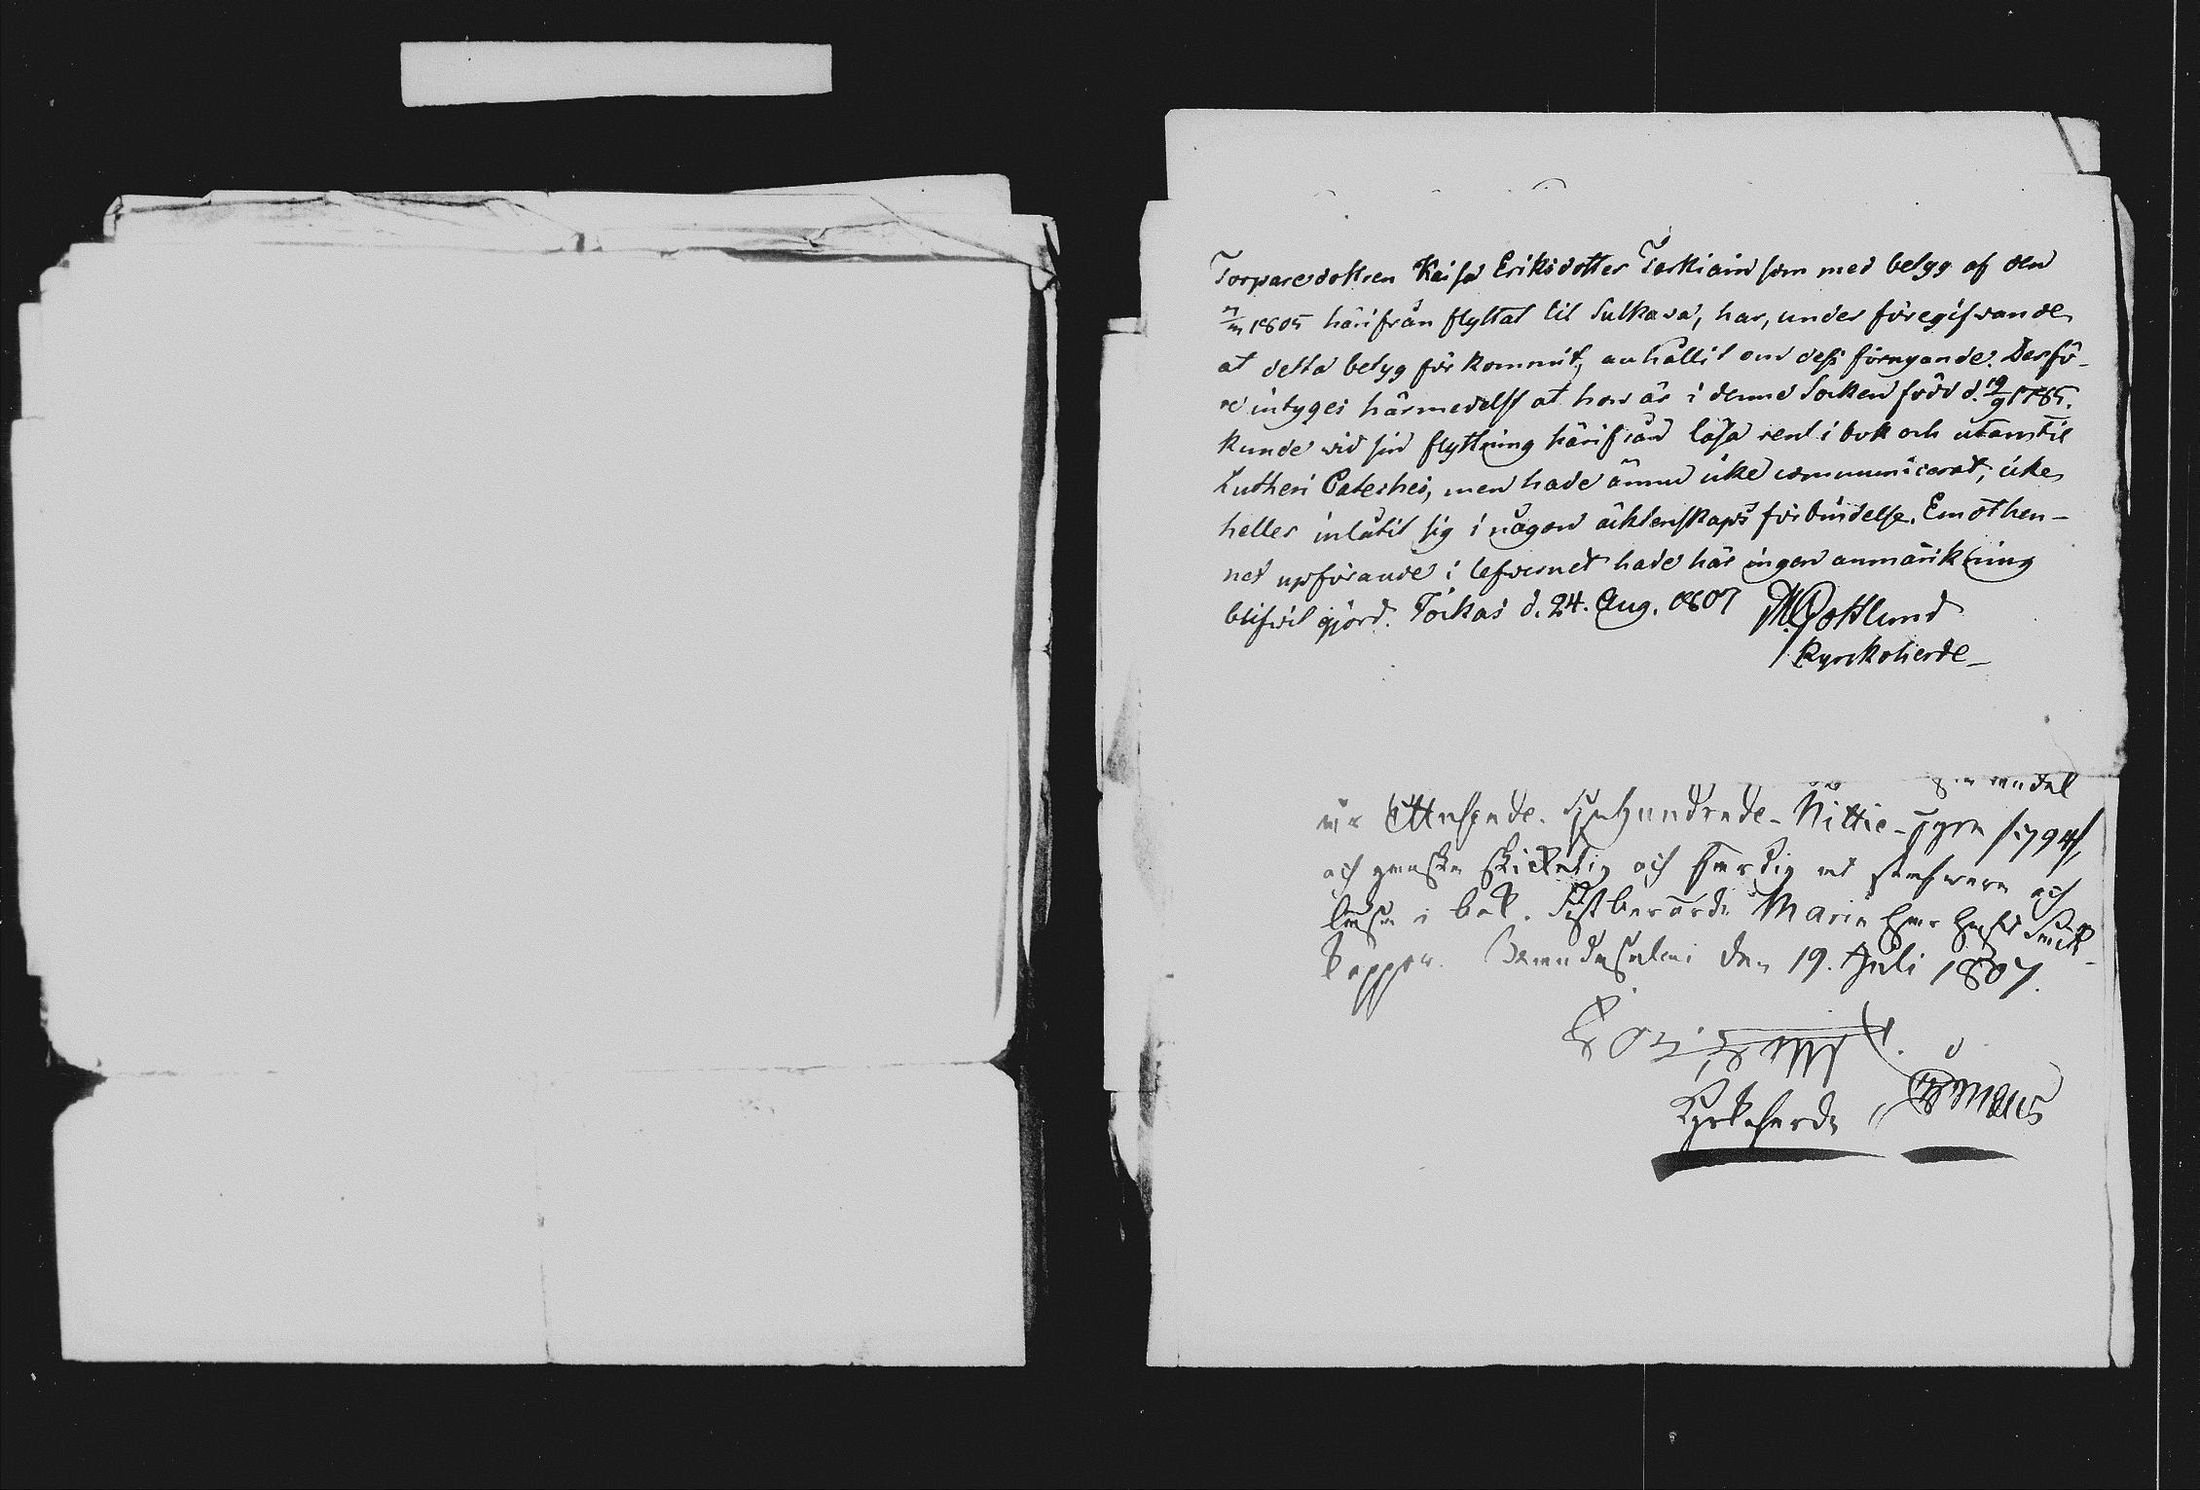 Torparedottren Kaisa Eriksdotter Tarkiain som med betyg af den
1805 härifrån flyttat til Sulkava, har, under föregifvande
at detta betyg förkommit, anhållit om dess förnyande. Derfö-
re intyges härmedelst at hon är i denne Socken född d. 19/9 1785.
kunde vid sin flyttning härifrån läsa rent i bok och utantil
Lutheri Cateches, men hade ännu icke communicerat, icke
heller inlåtit sig i någon äktenskaps förbindelse. Emot hen-
nes upförande i lefvernet hade här ingen anmärkning
blifvit gjord. Jockas d. 24. Aug. 1807 M. Gottlund
Kyrckoherde
är Ettusende Sjuhundrade Nittie-Fyra /:1794:/,
och ganska skickelig och färdig at och
läsa i bok. Maria
koppor. Randasalmi den 19. Juli 1807.
Kyrkoherde